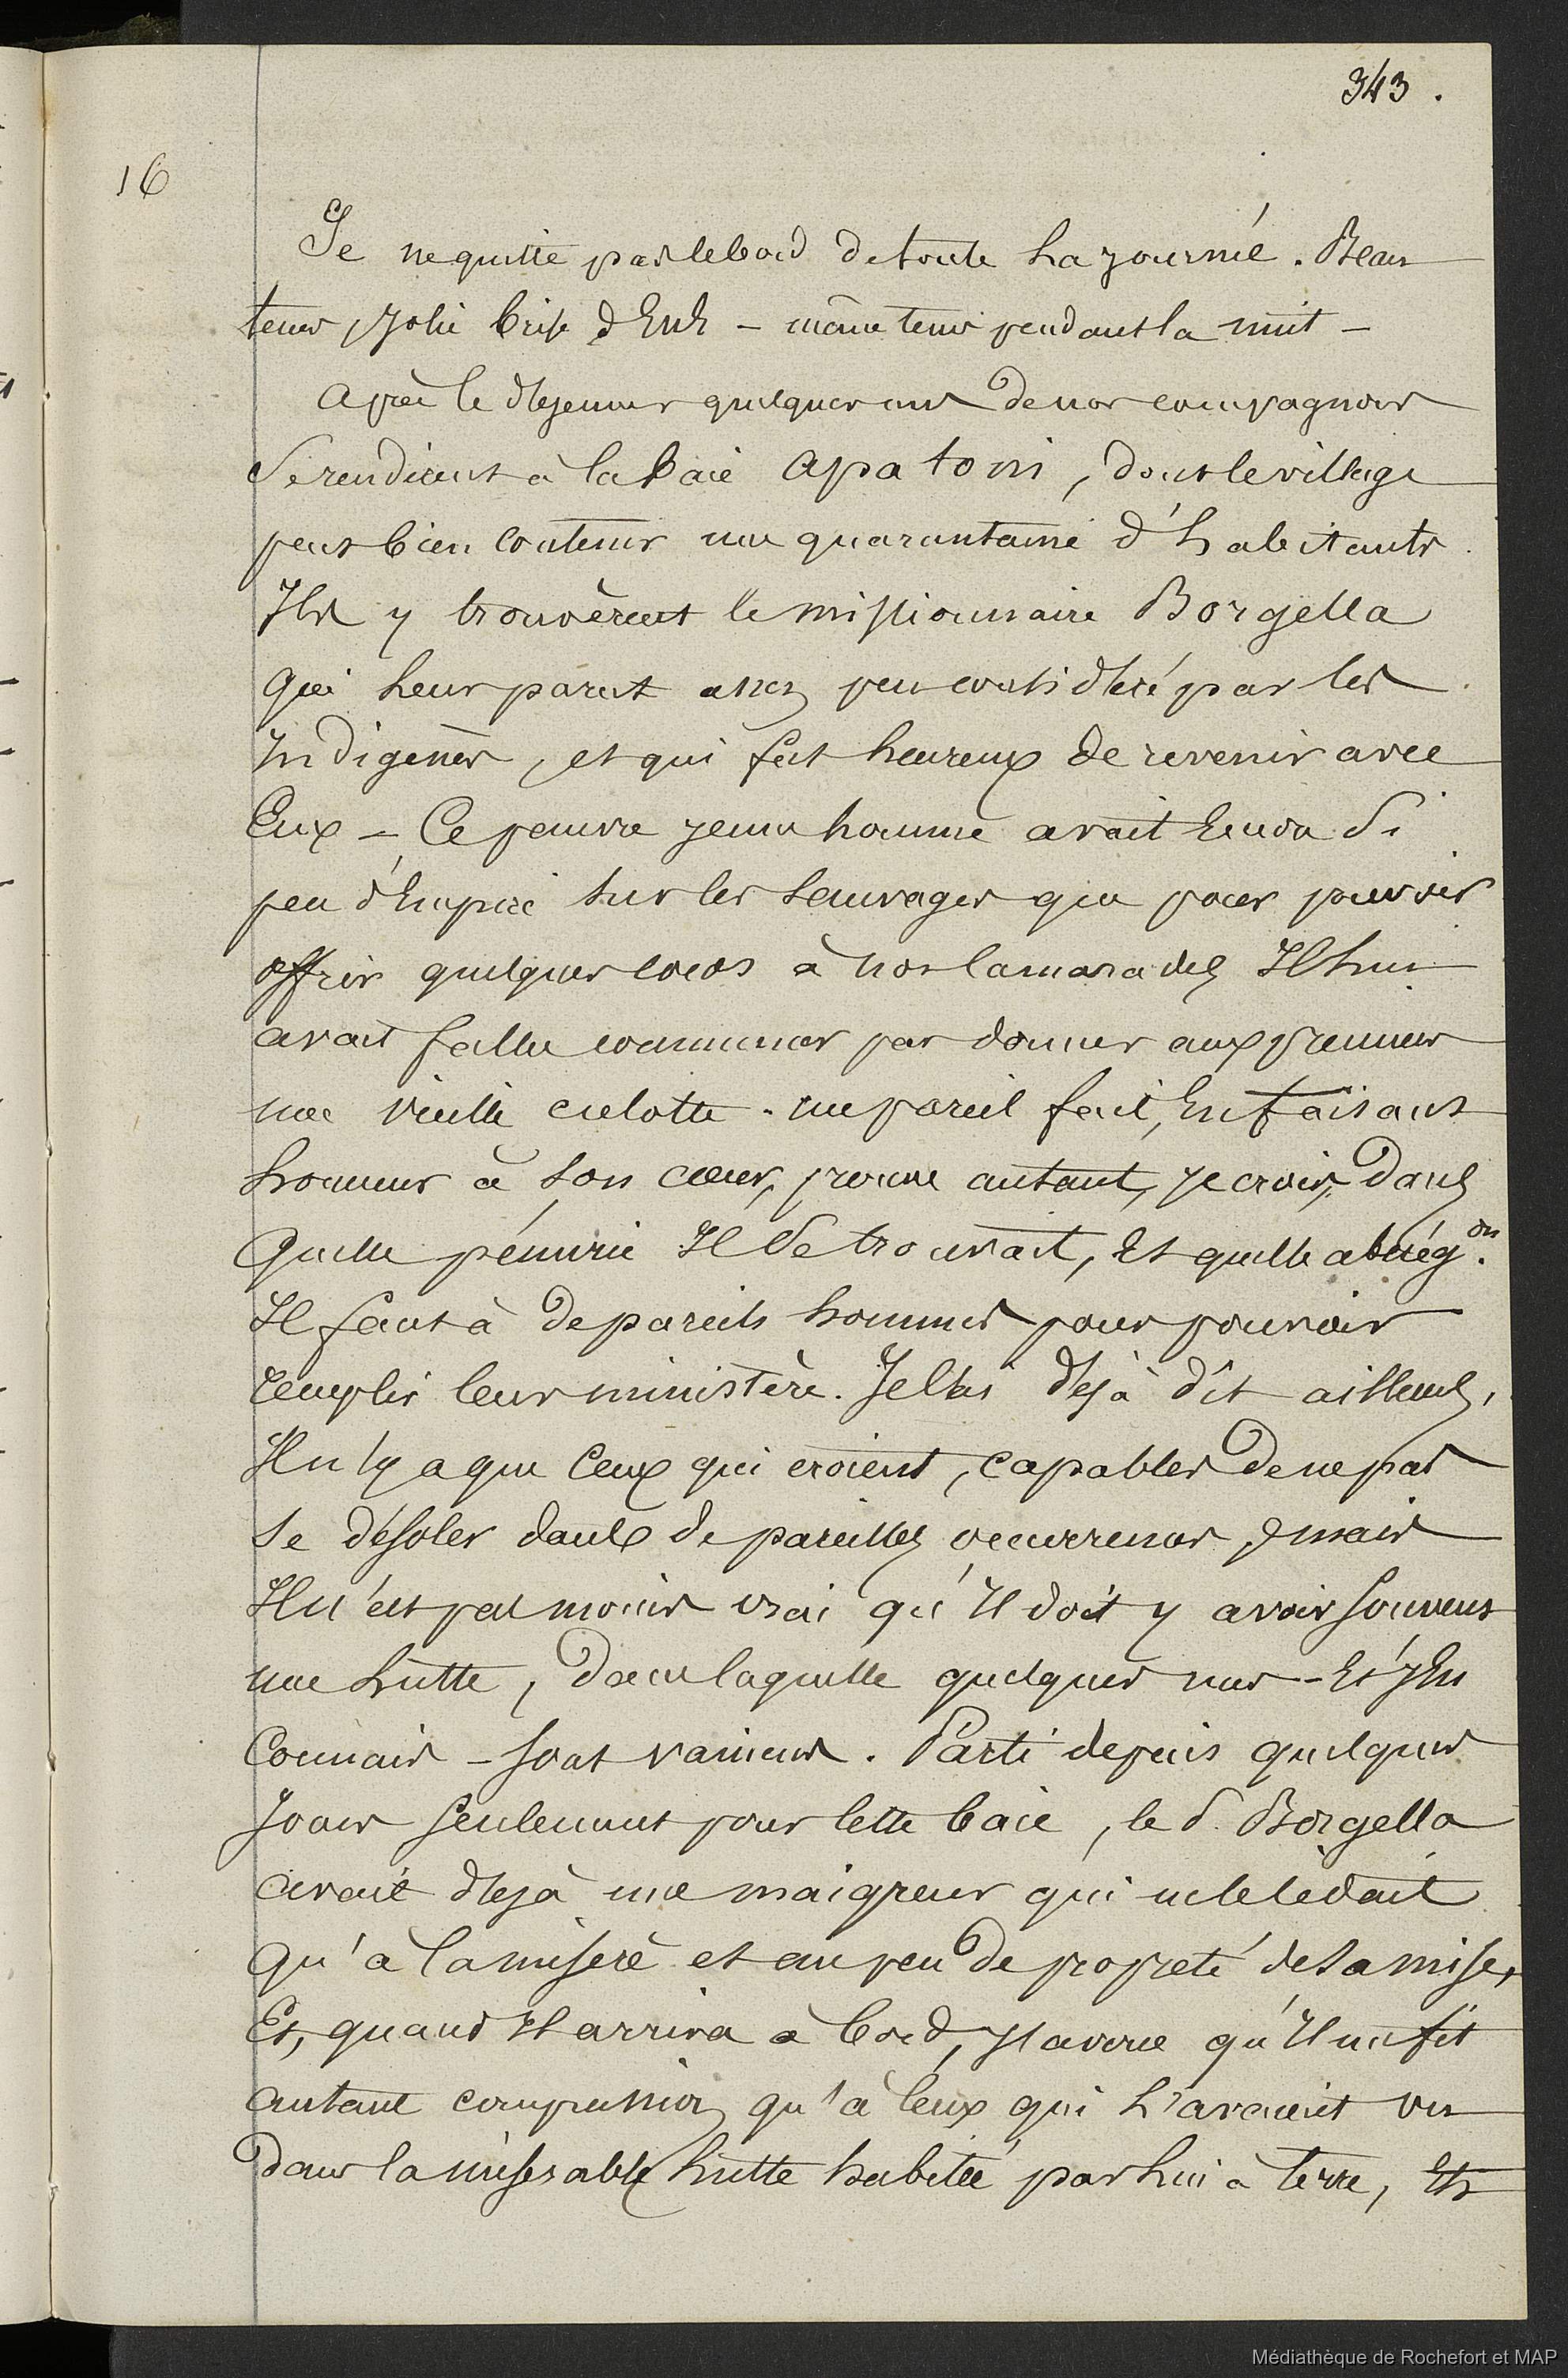 343.
16
Je ne quitte pas le bord de toute la journée. Beau
tems, jolie brise d'Est - même tems pendant la nuit -
Après le déjeuner quelques uns de nos compagnons
se rendirent à la baie Apatoni, dont le village
peut bien contenir une quarantaine d'habitants.
Ils y trouvèrent le missionnaire Borgella
qui leur parut assez peu considéré par les
Indigènes, et qui fut heureux de revenir avec
Eux - Ce pauvre jeune homme avait Encor si
peu d'Empire sur les sauvages que pour pouvoir
offrir quelques cocos à nos camarades Il lui
avait fallu commencer par donner aux premiers
une vieille culotte. un pareil fait, En faisant
honneur à son cœur, prouve autant, je crois, dans
quelle pénurie Il se trouvait, Et quelle abnég.on
Il faut à de pareils hommes pour pouvoir
remplir leur ministère. Je l'ai déjà dit ailleurs,
Il n'y a que ceux qui croient, capables de ne pas
se désoler dans de pareilles occurrences, mais
Il n'est pas moins vrai qu'Il doit y avoir souvent
une lutte, dans laquelle quelques uns - Et j'En
connais - sont vaincus. Parti depuis quelques
Jours seulement pour cette baie, le S. Borgella
avait déjà une maigreur qui ne le cédait
qu'à la misère et au peu de propreté de sa mise,
Et, quand Il arriva à bord, J'avoue qu'Il me fit
autant compassion qu'à ceux qui l'avaient vu
dans la misérable hutte habitée par lui à terre, Et
Médiathèque de Rochefort et MAP